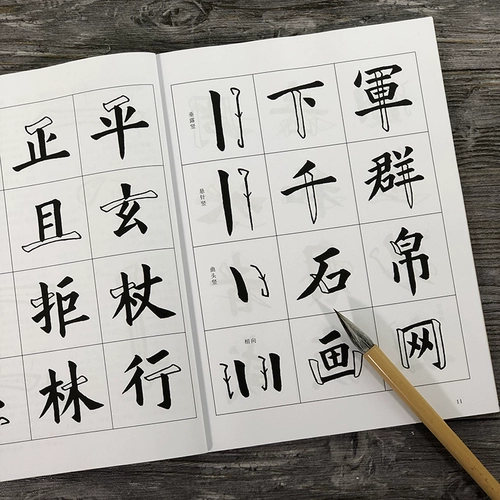 正 平
且 玄
拒 杖
林 行
垂露竖 下 軍
悬针竖 千 群
曲头竖 石 帛
相向 画 网
11